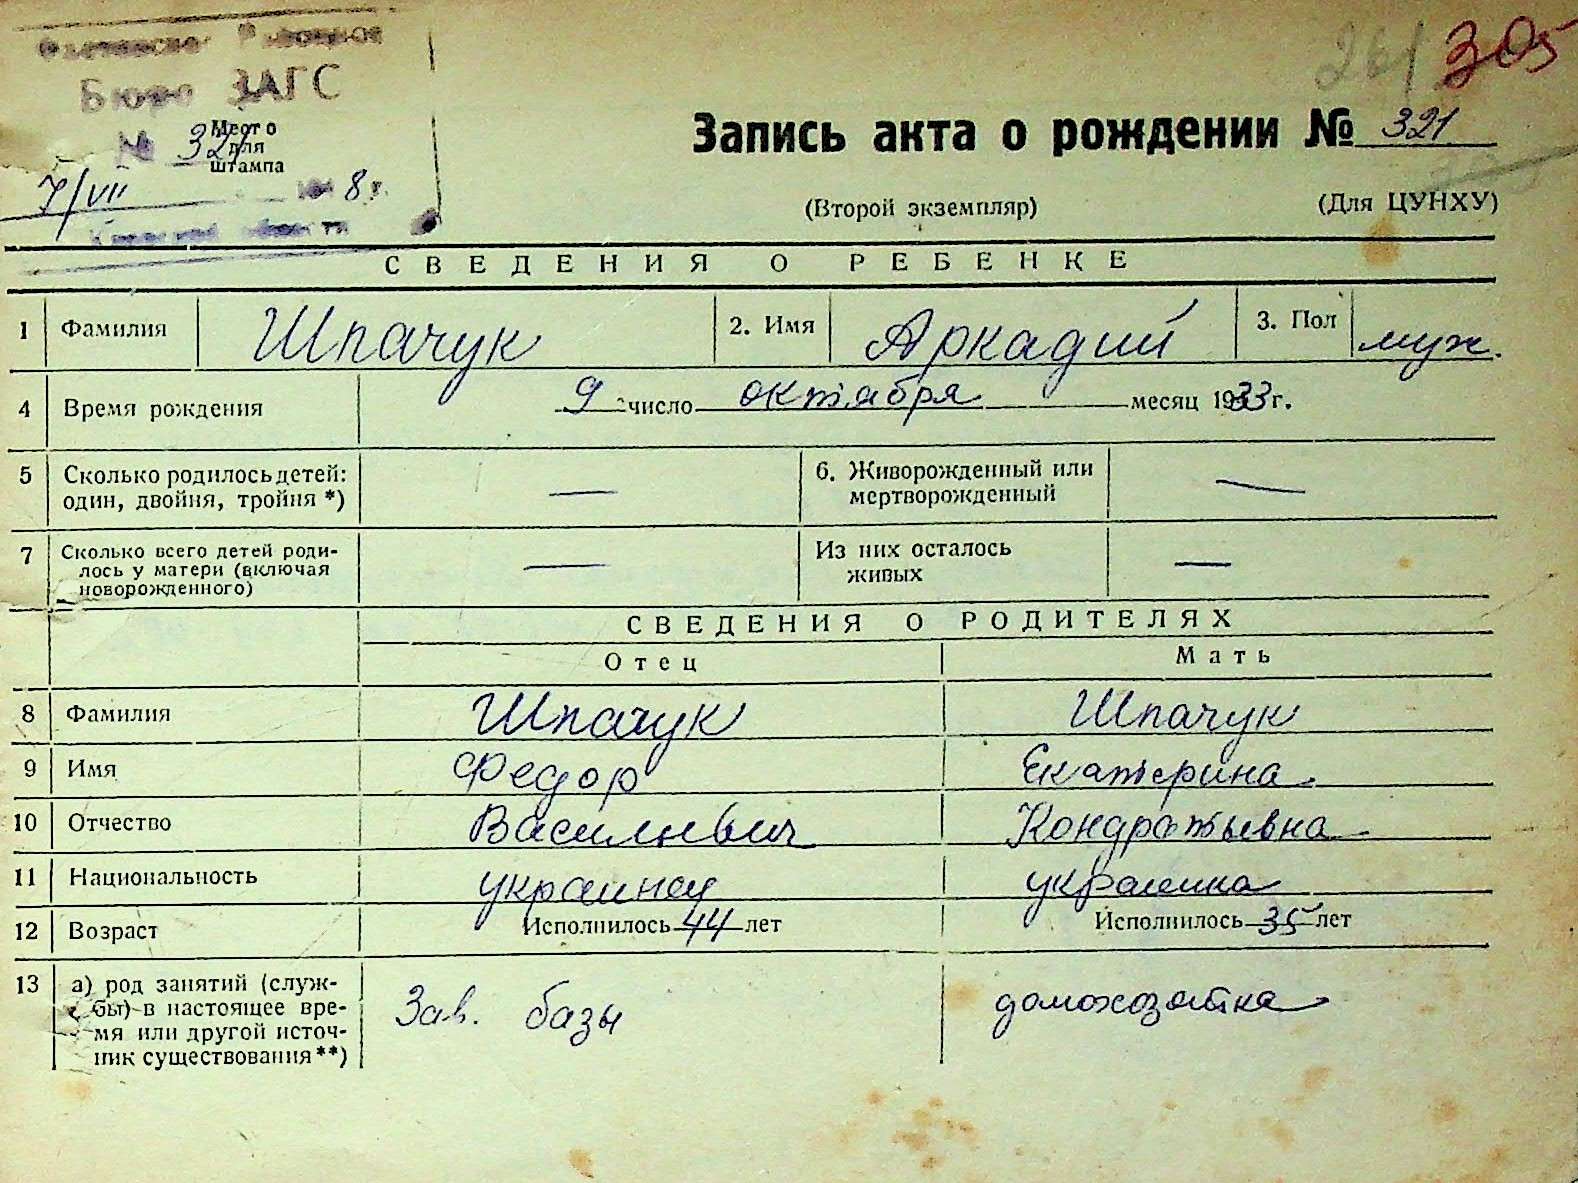 Бюро ЗАГС
Место
для
штампа
№ 321
7/VII 8 г.
26/ 305
Запись акта о рождении № 321
(Второй экземпляр) (Для ЦУНХУ)
СВЕДЕНИЯ О РЕБЕНКЕ
1 Фамилия Шпачук 2. Имя Аркадий 3. Пол муж.
4 Время рождения 9 число октября месяц 1933 г.
5 Сколько родилось детей: один, двойня, тройня *) — 6. Живорожденный или мертворожденный —
7 Сколько всего детей родилось у матери (включая новорожденного) — Из них осталось живых —
СВЕДЕНИЯ О РОДИТЕЛЯХ
Отец Мать
8 Фамилия Шпачук Шпачук
9 Имя Федор Екатерина
10 Отчество Васильевич Кондратьевна
11 Национальность украинец украинка
12 Возраст Исполнилось 44 лет Исполнилось 35 лет
13 а) род занятий (служ-
бы) в настоящее вре-
мя или другой источ-
ник существования **)
Зав. базы домохозяйка